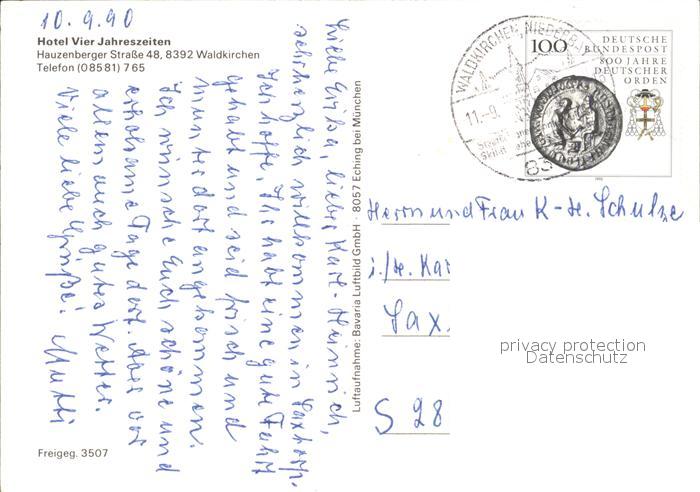 10.9.90
Hotel Vier Jahreszeiten
Hauzenberger Straße 48, 8392 Waldkirchen
Telefon (08581) 765
Liebe Erika, lieber Karl-Heinrich,
seid herzlich willkommen in Saxtorp.
Ich hoffe, Ihr habt eine gute Fahrt
gehabt und seid frisch und
munter dort angekommen.
Ich wünsche Euch schöne und
erholsame Tage dort. Aber vor
allem auch gutes Wetter.
Viele liebe Grüße! Mutti
Freigeg. 3507
Luftaufnahme: Bavaria Luftbild GmbH · 8057 Eching bei München
WALDKIRCHEN, NIEDERB
11.-9.
83
100
DEUTSCHE
BUNDESPOST
800 JAHRE
DEUTSCHER
ORDEN
1990
Herrn und Frau K-H. Schulze
i./H. Kar
Sax.
S 28
privacy protection
Datenschutz